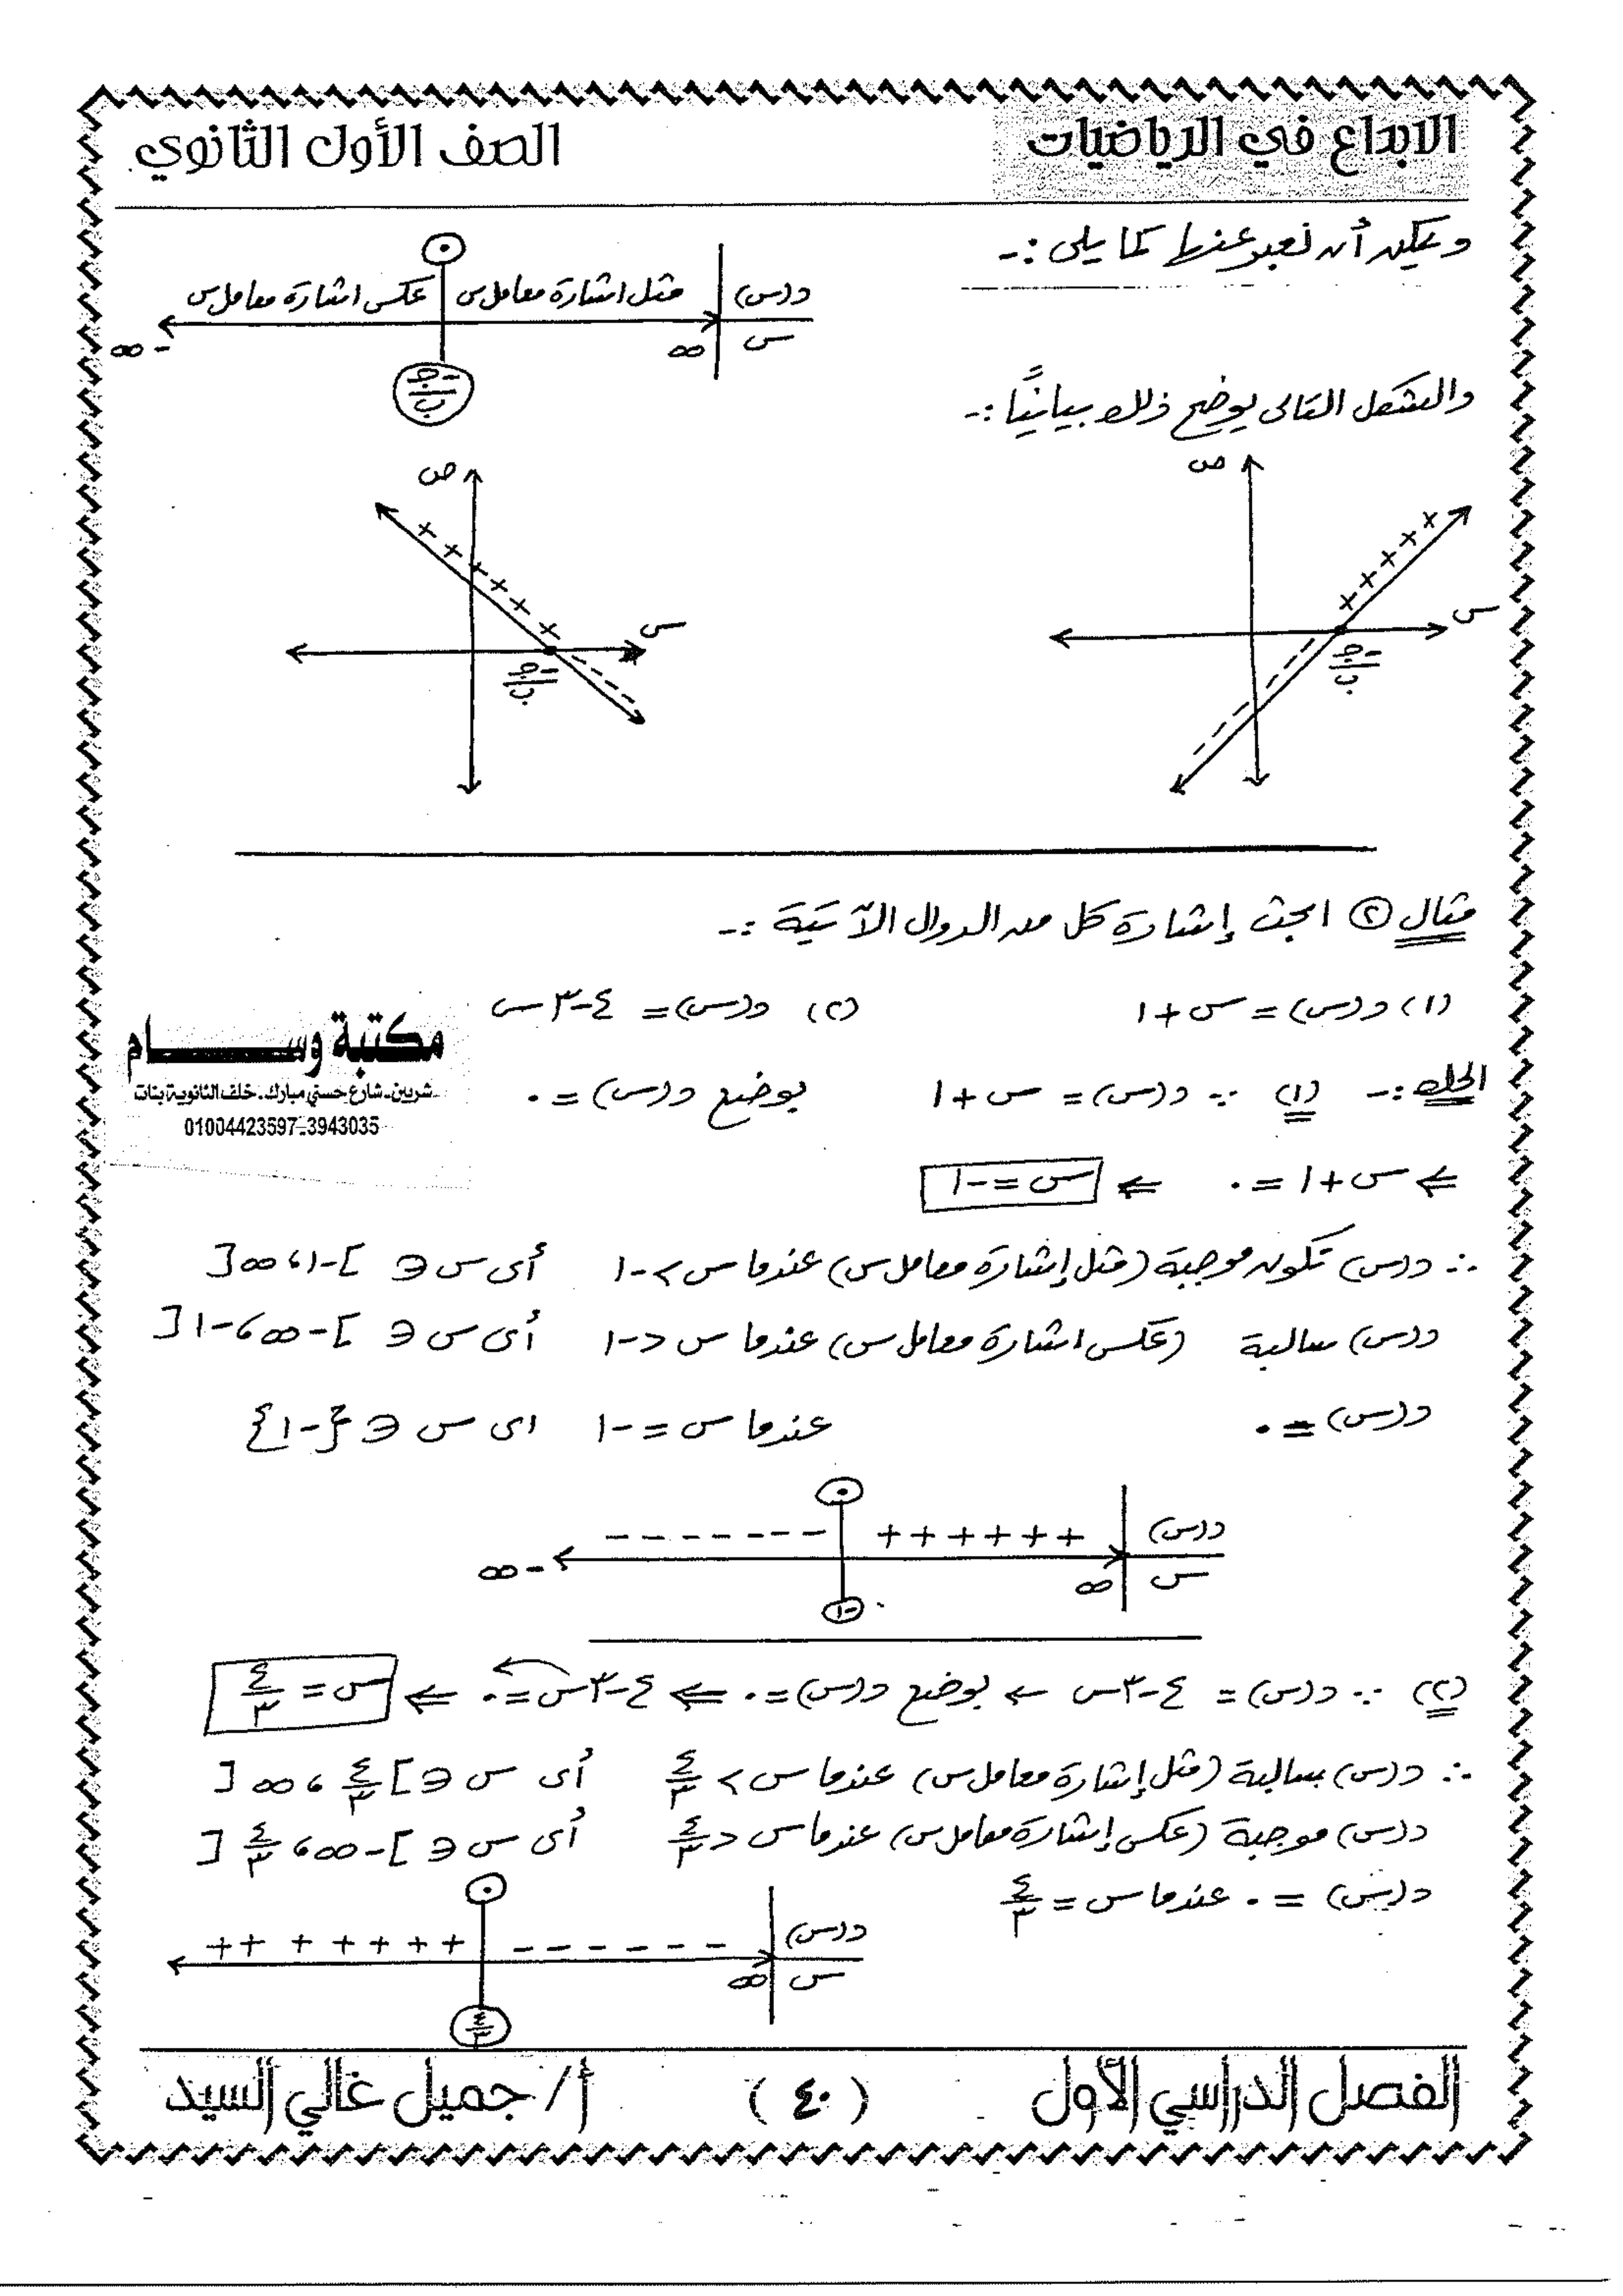 الابداع في الرياضيات الصف الأول الثانوي
ويمكن أن نعبر عنها كما يلى :-
د(س) مثل اشارة معامل س عكس اشارة معامل س
س ∞ -جـ/ب -∞
والشكل التالى يوضح ذلك بيانيًا :-
ص ص
س س
-جـ/ب -جـ/ب
مثال ② ابحث إشارة كل من الدوال الآتية :-
(١) د(س) = س + ١ (٢) د(س) = ٤ - ٣س
مكتبة وسام
شربين - شارع حسني مبارك - خلف الثانوية بنات
01004423597-3943035
الحل :- (١) ∵ د(س) = س + ١ بوضع د(س) = ٠
⇐ س + ١ = ٠ ⇐ س = -١
∴ د(س) تكون موجبة (مثل إشارة معامل س) عندما س > -١ أى س ∈ ]-١، ∞[
د(س) سالبة (عكس اشارة معامل س) عندما س < -١ أى س ∈ ]-∞، -١[
د(س) = ٠ عندما س = -١ اى س ∈ {-١}
د(س) + + + + + + ٠ - - - - - - -
س ∞ -١ -∞
(٢) ∵ د(س) = ٤ - ٣س ← بوضع د(س) = ٠ ⇐ ٤ - ٣س = ٠ ⇐ س = ٤/٣
∴ د(س) سالبة (مثل إشارة معامل س) عندما س > ٤/٣ أى س ∈ ]٤/٣، ∞[
د(س) موجبة (عكس إشارة معامل س) عندما س < ٤/٣ أى س ∈ ]-∞، ٤/٣[
د(س) = ٠ عندما س = ٤/٣
د(س) - - - - - - ٠ + + + + + + +
س ∞ ٤/٣
الفصل الدراسي الأول (٤٠) أ/ جميل غالي السيد